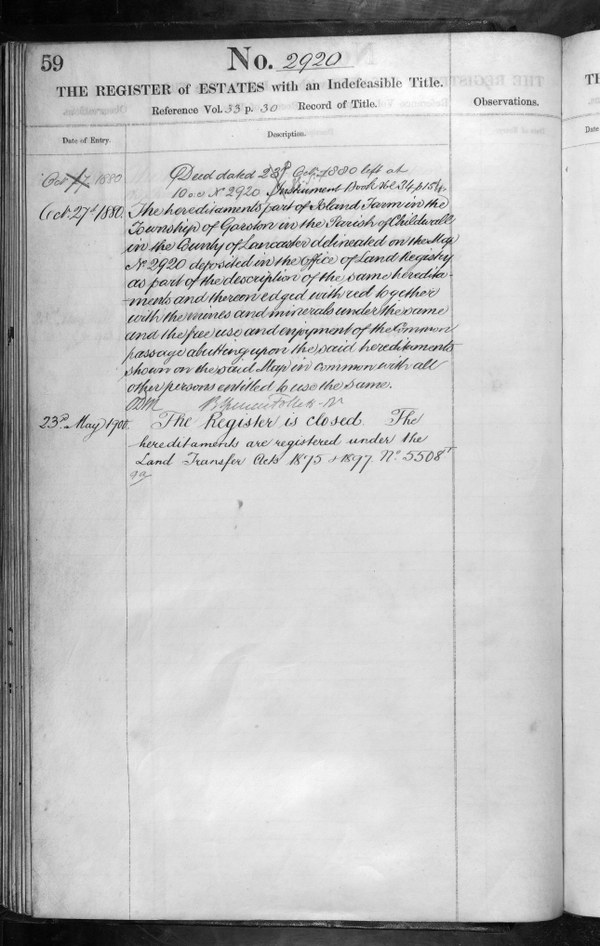 59
No. 2920
THE REGISTER of ESTATES with an Indefeasible Title.
Reference Vol. 33 p. 30 Record of Title.
Observations.
Date of Entry.
Description.
Oct 17 1880
Deed dated 23d Octr. 1880 left at
10 o.c. No 2920 Instrument Book Vol 34, p 154.
Oct. 27th 1880.
The hereditaments part of Island Farm in the
Township of Garston in the Parish of Childwall
in the County of Lancaster delineated on the Map
No 2920 deposited in the office of Land Registry
as part of the description of the same heredita-
-ments and thereon edged with red together
with the mines and minerals under the same
and the free use and enjoyment of the Common
passage abutting upon the said hereditaments
shown on the said Map in common with all
other persons entitled to use the same.
Follett
23d. May 1900.
The Register is closed. The
hereditaments are registered under the
Land Transfer Acts 1875 & 1897 No. 5508